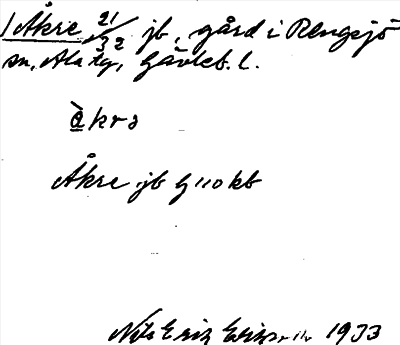 1 Åkre 21/32 jb, gård i Rengsjö
sn, Ala tg, Gävleb. l.
àkrə
Åkre jb G 110 kb
Nils Erik Eriksson 1933